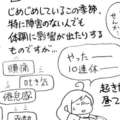 じめじめしているこの季節、
特に障害のない人でも
体調に影響が出たりする
ものですが…
腰痛
吐き気
倦怠感
やった━━
10連休━
起き
昼て